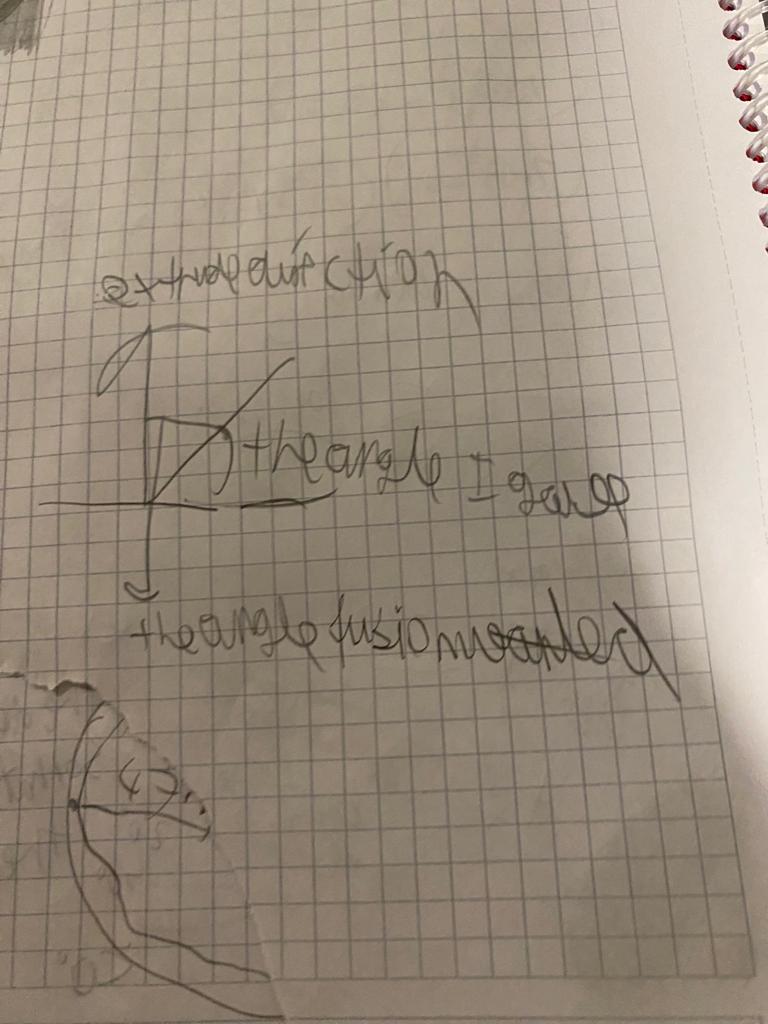 extrude direction
the angle I gave
the angle fusion wanted